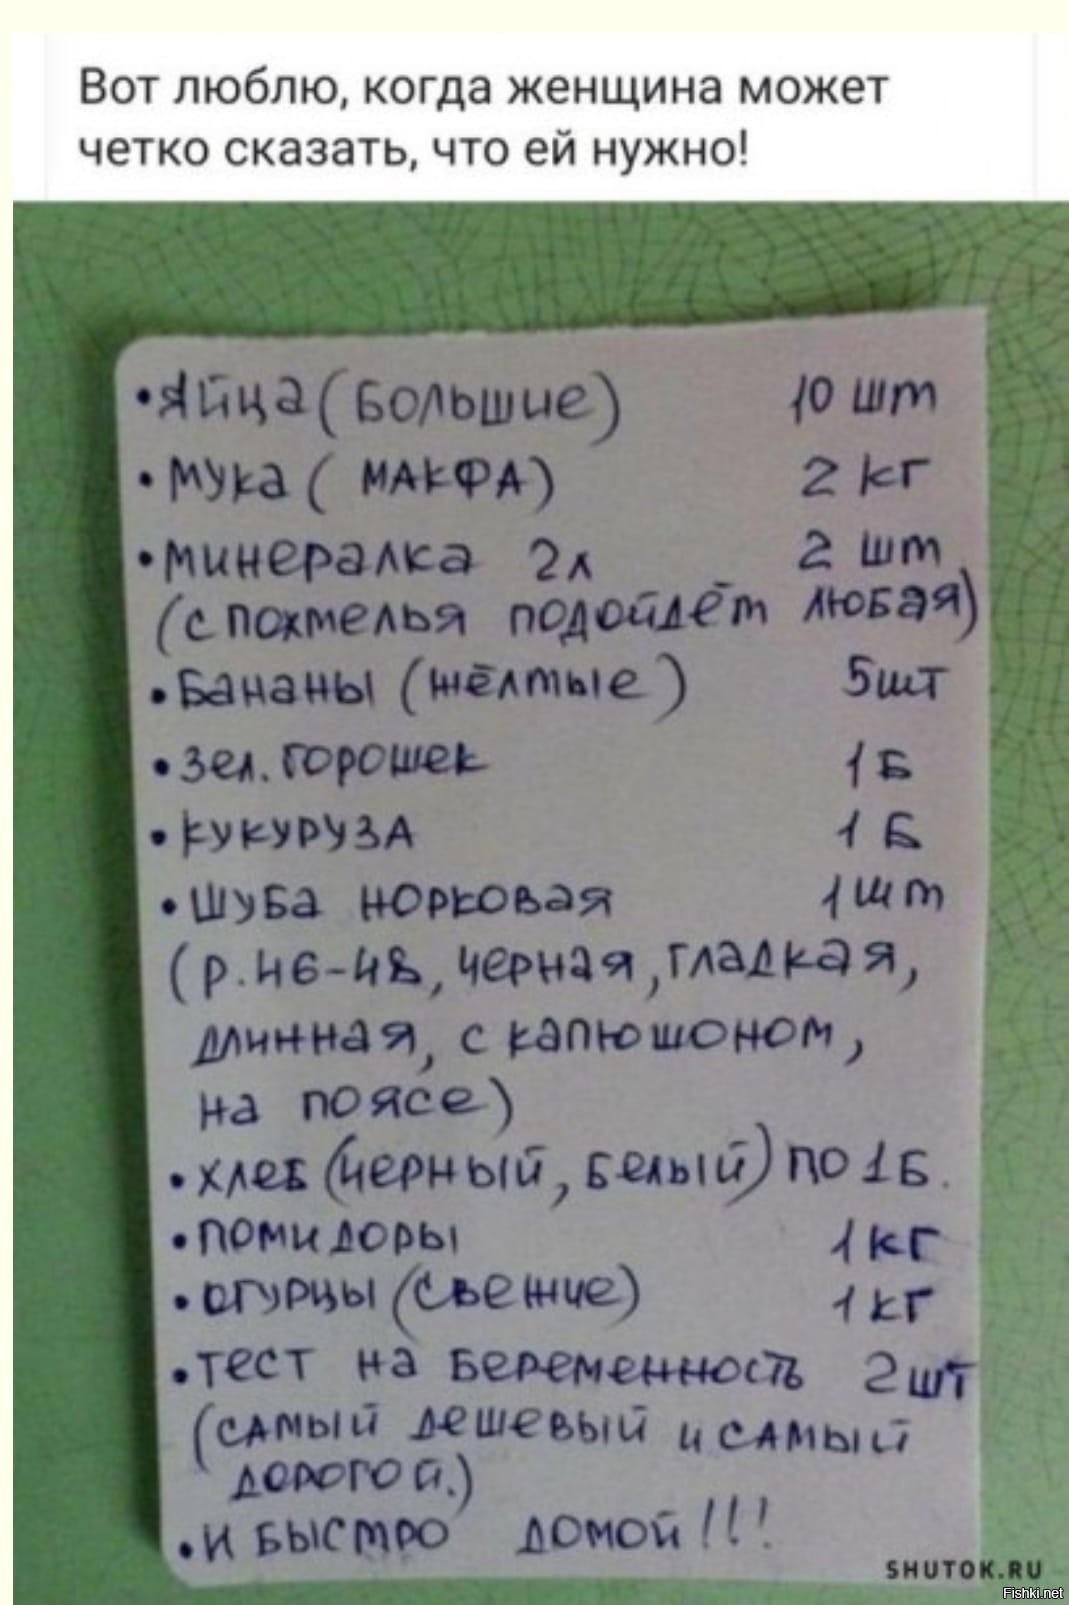 Вот люблю, когда женщина может
четко сказать, что ей нужно!
• Яйца (Большие) 10 шт
• Мука ( МАКФА) 2 кг
• Минералка 2л 2 шт
(с похмелья подойдёт любая)
• Бананы (жёлтые) 5шт
• Зел. горошек 1 Б
• Кукуруза 1 Б
• Шуба норковая 1 шт
(р.46-48, черная, гладкая,
длинная, с капюшоном,
на поясе)
• хлеб (черный, белый) по 1Б.
• помидоры 1 кг
• огурцы (свежие) 1 кг
• тест на беременность 2 шт
(самый дешевый и самый
дорогой.)
• И быстро домой!!!
SHUTOK.RU
Fishki.net